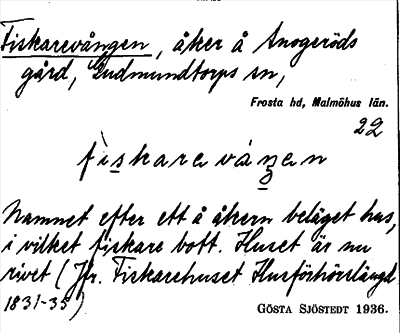 Fiskarevången, åker å Snogeröds
gård, Gudmundtorps sn,
Frosta hd, Malmöhus län.
22
fiskarevåŋan
Namnet efter ett å åkern beläget hus,
i vilket fiskare bott. Huset är nu
rivet (Jfr. Fiskarehuset Husförhörslängd
1831-35)
GÖSTA SJÖSTEDT 1936.